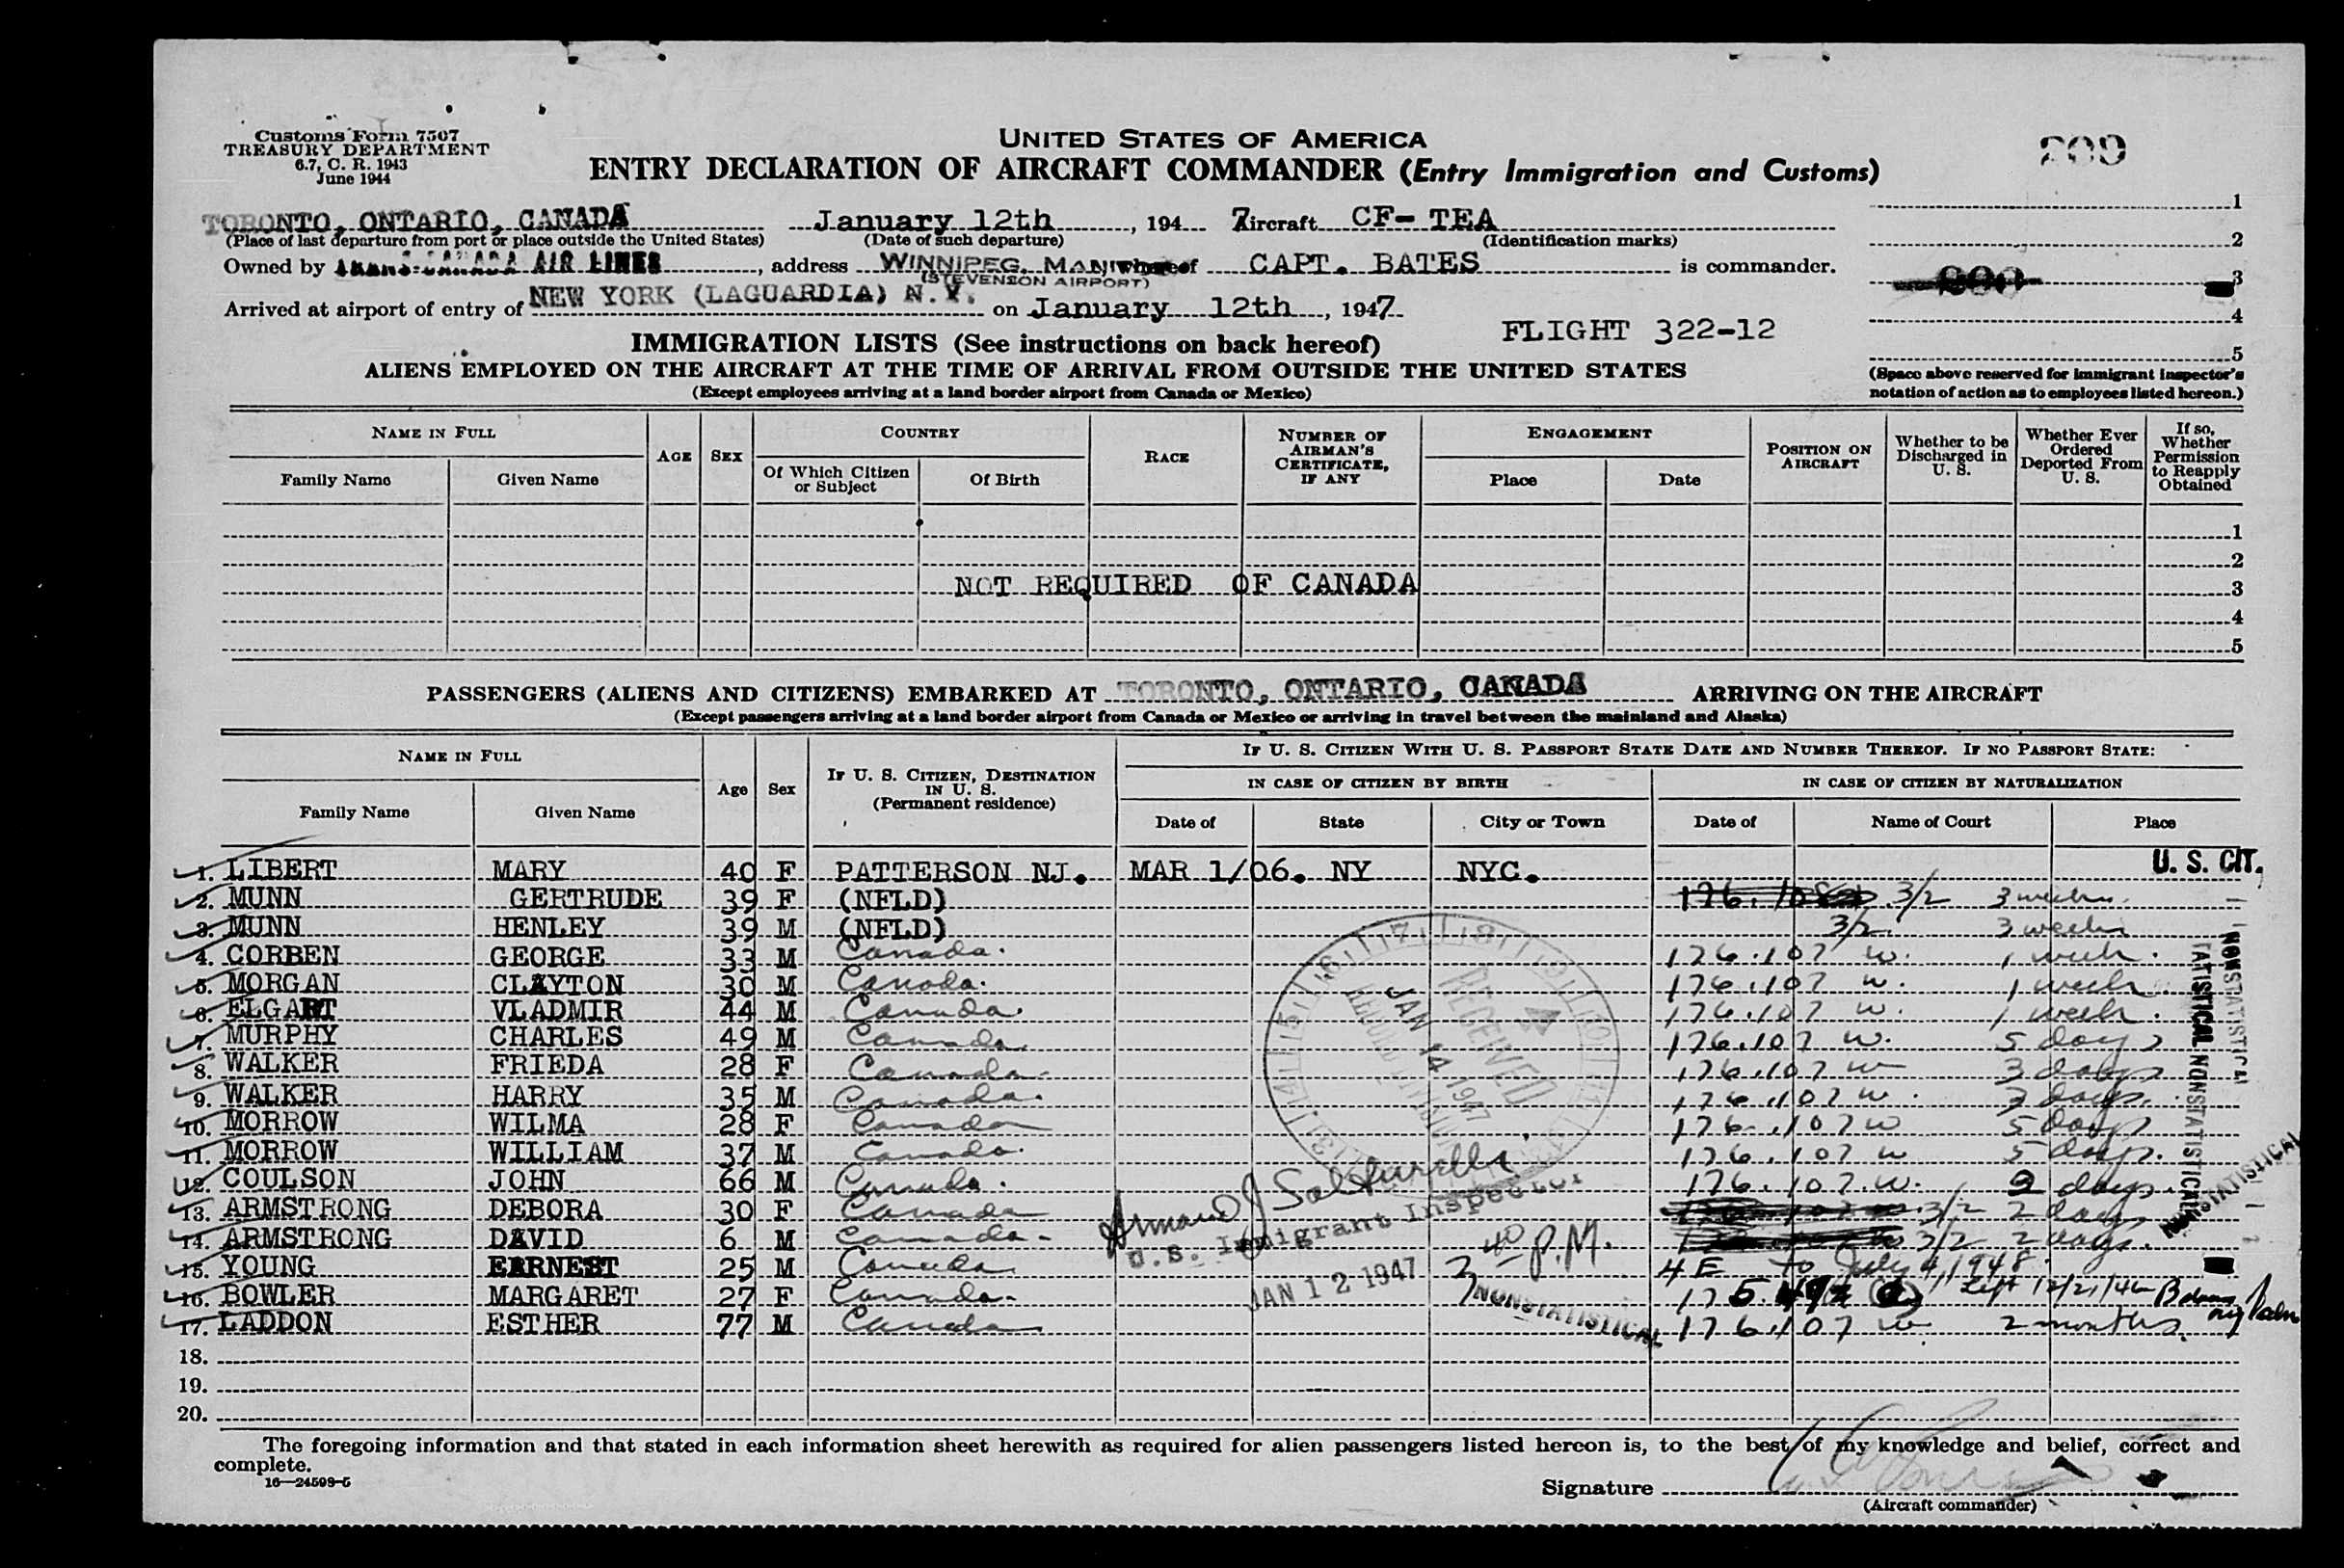 Customs Form 7507
TREASURY DEPARTMENT
6.7, C. R. 1943
June 1944
UNITED STATES OF AMERICA
ENTRY DECLARATION OF AIRCRAFT COMMANDER (Entry Immigration and Customs)
209
TORONTO, ONTARIO, CANADA January 12th, 194 7 ircraft CF- TEA
(Place of last departure from port or place outside the United States) (Date of such departure) (Identification marks)
Owned by TRANS-CANADA AIR LINES, address WINNIPEG, MAN whereof CAPT. BATES is commander.
(STEVENSON AIRPORT)
Arrived at airport of entry of NEW YORK (LAGUARDIA) N.Y. on January 12th, 1947
1
2
3
4
5
FLIGHT 322-12
IMMIGRATION LISTS (See instructions on back hereof)
ALIENS EMPLOYED ON THE AIRCRAFT AT THE TIME OF ARRIVAL FROM OUTSIDE THE UNITED STATES
(Except employees arriving at a land border airport from Canada or Mexico)
(Space above reserved for immigrant inspector's
notation of action as to employees listed hereon.)
NAME IN FULL
Family Name Given Name
AGE SEX
COUNTRY
Of Which Citizen or Subject Of Birth
RACE
NUMBER OF AIRMAN'S CERTIFICATE, IF ANY
ENGAGEMENT
Place Date
POSITION ON AIRCRAFT
Whether to be Discharged in U. S.
Whether Ever Ordered Deported From U. S.
If so, Whether Permission to Reapply Obtained
1
2
NOT REQUIRED OF CANADA 3
4
5
PASSENGERS (ALIENS AND CITIZENS) EMBARKED AT TORONTO, ONTARIO, CANADA ARRIVING ON THE AIRCRAFT
(Except passengers arriving at a land border airport from Canada or Mexico or arriving in travel between the mainland and Alaska)
NAME IN FULL
Family Name Given Name
Age Sex
IF U. S. CITIZEN, DESTINATION IN U. S.
(Permanent residence)
IF U. S. CITIZEN WITH U. S. PASSPORT STATE DATE AND NUMBER THEREOF. IF NO PASSPORT STATE:
IN CASE OF CITIZEN BY BIRTH IN CASE OF CITIZEN BY NATURALIZATION
Date of State City or Town Date of Name of Court Place
1. LIBERT MARY 40 F PATTERSON NJ. MAR 1/06. NY NYC. U. S. CIT.
2. MUNN GERTRUDE 39 F (NFLD) 3/2 3 weeks
3. MUNN HENLEY 39 M (NFLD) 3/2 3 weeks
4. CORBEN GEORGE 33 M Canada. 176.107 w. 1 week.
5. MORGAN CLAYTON 30 M Canada. 176.107 w. 1 week.
6. ELGART VLADMIR 44 M Canada. 176.107 w. 1 week.
7. MURPHY CHARLES 49 M Canada. 176.107 w. 5 days
8. WALKER FRIEDA 28 F Canada. 176.107 w 3 days
9. WALKER HARRY 35 M Canada. 176.107 w. 3 days.
10. MORROW WILMA 28 F Canada 176.107 w 5 days
11. MORROW WILLIAM 37 M Canada. 176.107 w 5 days.
12. COULSON JOHN 66 M Canada. 176.107.w. 2 days.
13. ARMSTRONG DEBORA 30 F Canada 3/2 2 days
14. ARMSTRONG DAVID 6 M Canada. 3/2 2 days.
15. YOUNG EARNEST 25 M Canada 4E to July 4, 1948.
16. BOWLER MARGARET 27 F Canada. 175. Left 12/21/46
17. LADDON ESTHER 77 M Canada 176.107 w 2 months.
18.
19.
20.
RECEIVED
JAN 14 1947
U.S. Immigrant Inspector
JAN 12 1947
3 40 P.M.
NONSTATISTICAL
NONSTATISTICAL
NONSTATISTICAL
NONSTATISTICAL
The foregoing information and that stated in each information sheet herewith as required for alien passengers listed hereon is, to the best of my knowledge and belief, correct and
complete.
16—24598-5
Signature
(Aircraft commander)